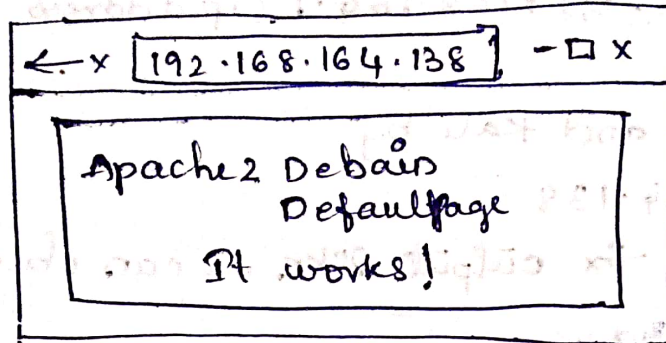 ← x 192.168.164.138 - □ x
Apache2 Debain
Defaultpage
It works!